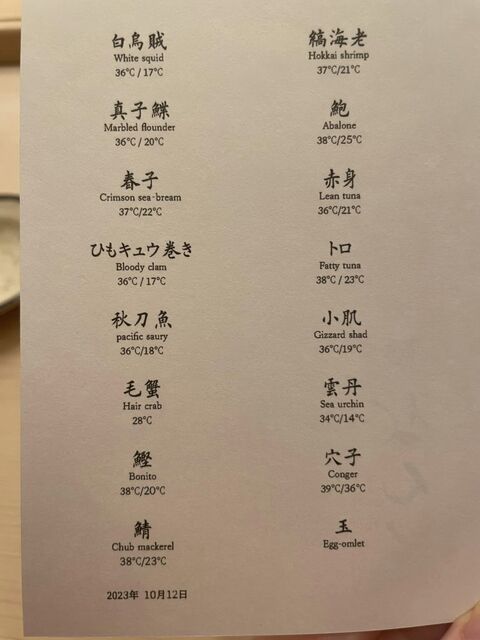 白烏賊
White squid
36℃ / 17℃
真子鰈
Marbled flounder
36℃ / 20℃
春子
Crimson sea-bream
37℃/22℃
ひもキュウ巻き
Bloody clam
36℃ / 17℃
秋刀魚
pacific saury
36℃/18℃
毛蟹
Hair crab
28℃
鰹
Bonito
38℃/20℃
鯖
Chub mackerel
38℃/23℃
縞海老
Hokkai shrimp
37℃/21℃
鮑
Abalone
38℃/25℃
赤身
Lean tuna
36℃/21℃
トロ
Fatty tuna
38℃ / 23℃
小肌
Gizzard shad
36℃/19℃
雲丹
Sea urchin
34℃/14℃
穴子
Conger
39℃/36℃
玉
Egg-omlet
2023年 10月12日